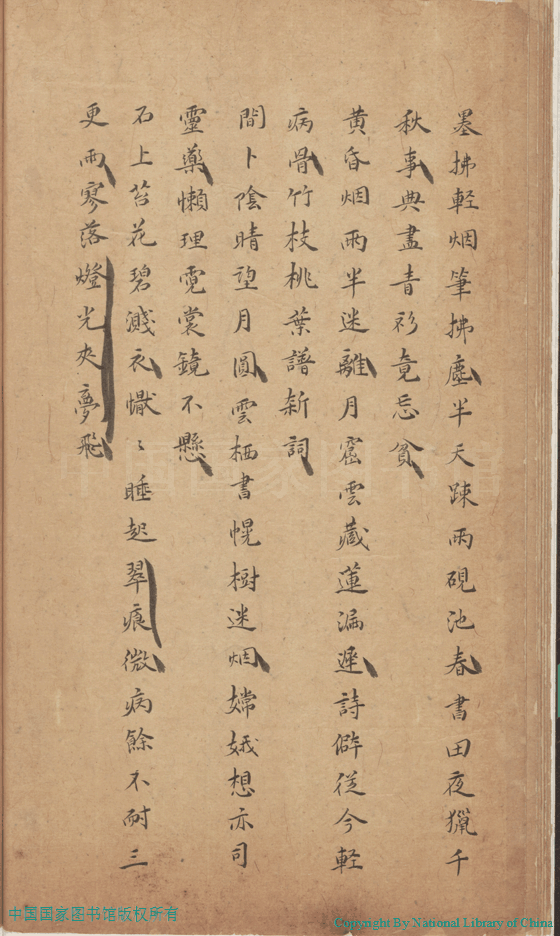 墨拂軽烟筆拂塵半天踈雨硯池春書田夜獵千
秋事典盡青衫竟忘貧
黄昏烟雨半迷離月窟雲藏蓮漏遲詩僻従今軽
病骨竹枝桃葉譜新詞
間卜陰晴望月圓雲栖書幌樹迷烟嫦娥想亦司
靈藥懶理霓裳鏡不懸
石上苔花碧濺衣懨〻睡起翠痕微病餘不耐三
更雨寥落燈光夾夢飛
中国国家图书馆
中国国家图书馆版权所有
Copyright By National Library of China